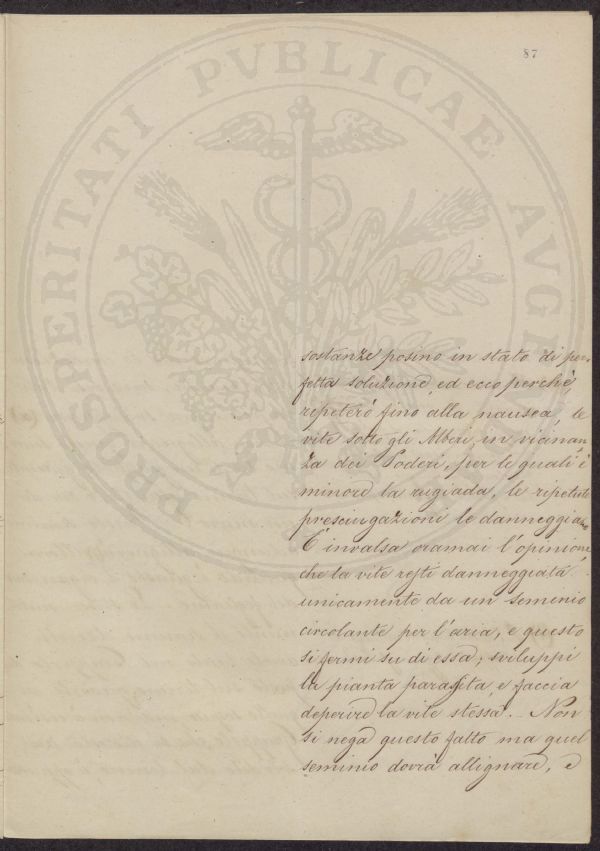 87
PROSPERITATI PVBLICAE AVGEN
sostanze posino in stato di per,
fetta soluzione, ed ecco perchè,
ripeterò fino alla nausea, le
vite sotto gli Alberi, in vicinan,
za dei Poderi, per le quali è
minore la rugiada, le ripetute
presciugazioni le danneggiano
È invalsa oramai l'opinione,
che la vite resti danneggiata
unicamente da un seminio
circolante per l'aria, e questo
si fermi su di essa, sviluppi
la pianta parassita, e faccia
deperire la vite stessa. - Non
si nega questo fatto ma quel
seminio dovrà allignare, e